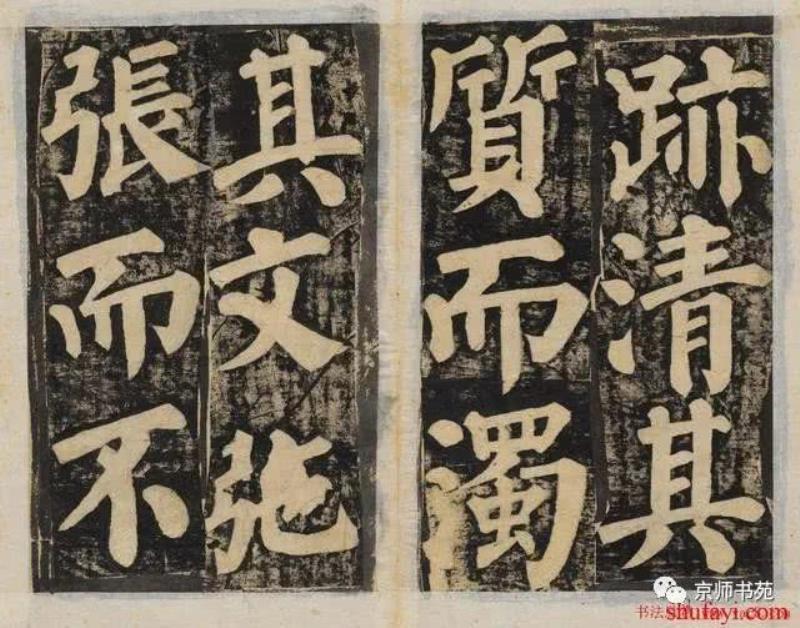 跡清其
質而濁
其文弛
張而不
京师书苑
shufayi.com